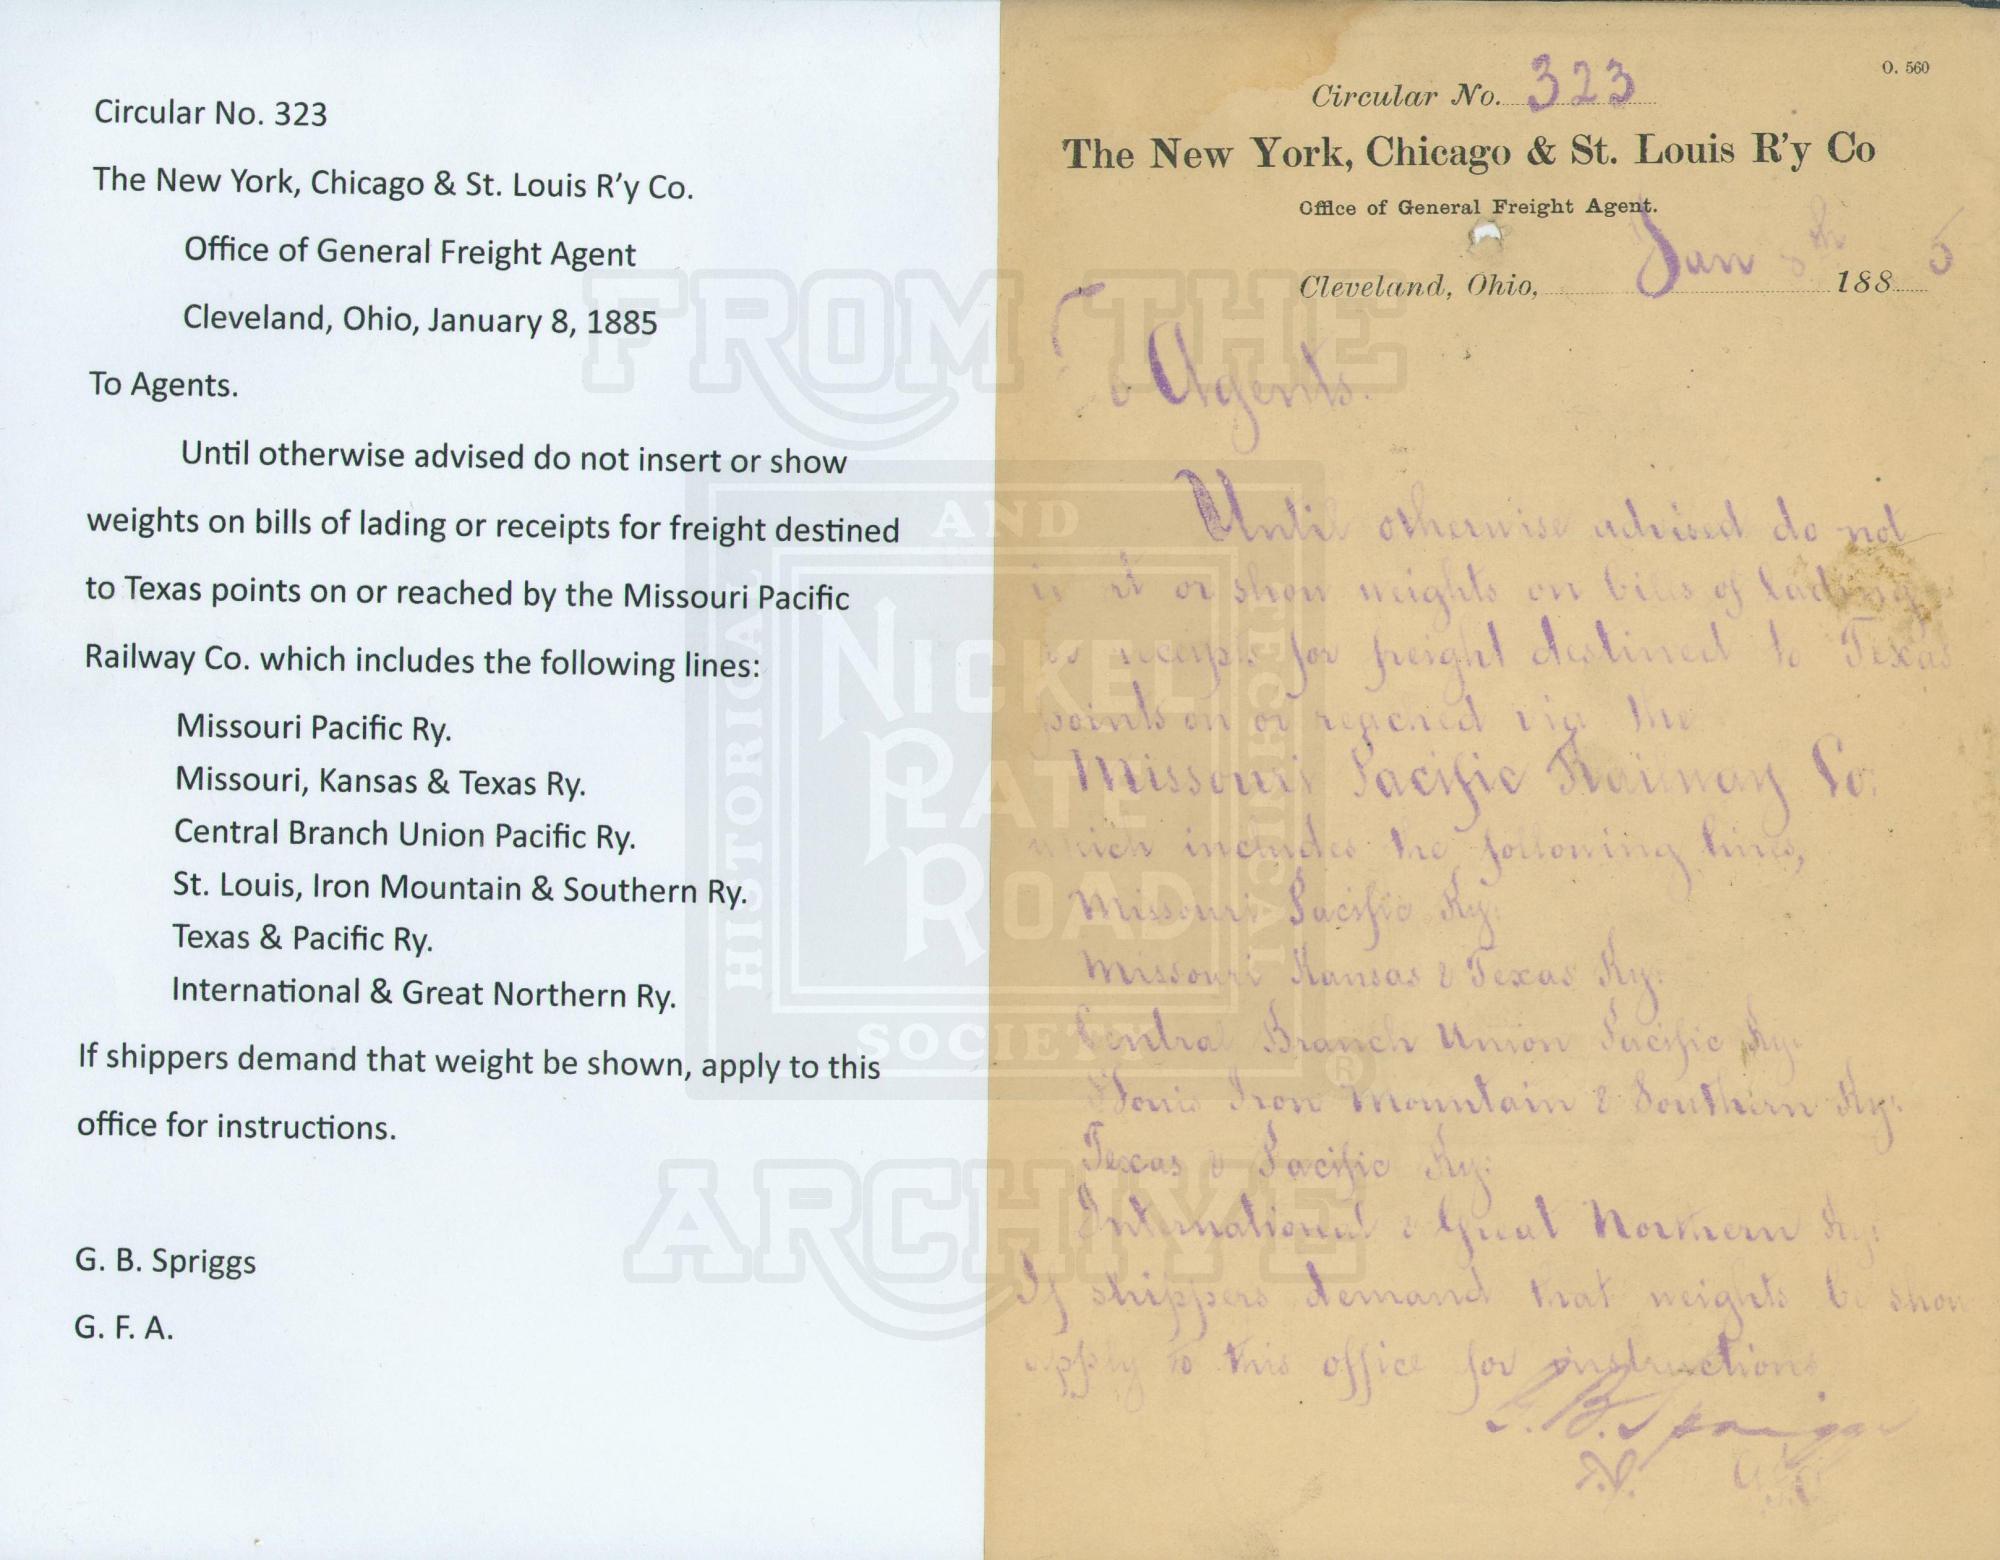 Circular No. 323
The New York, Chicago & St. Louis R’y Co.
Office of General Freight Agent
Cleveland, Ohio, January 8, 1885
To Agents.
Until otherwise advised do not insert or show
weights on bills of lading or receipts for freight destined
to Texas points on or reached by the Missouri Pacific
Railway Co. which includes the following lines:
Missouri Pacific Ry.
Missouri, Kansas & Texas Ry.
Central Branch Union Pacific Ry.
St. Louis, Iron Mountain & Southern Ry.
Texas & Pacific Ry.
International & Great Northern Ry.
If shippers demand that weight be shown, apply to this
office for instructions.
G. B. Spriggs
G. F. A.
O. 560
Circular No. 323
The New York, Chicago & St. Louis R'y Co
Office of General Freight Agent.
Cleveland, Ohio, Jan 8th 1885
To Agents.
Until otherwise advised do not
or show weights on bills of lading
receipts for freight destined to Texas
points on or reached via the
Missouri Pacific Railway Co.
which includes the following lines,
Missouri Pacific Ry.
Missouri Kansas & Texas Ry.
Central Branch Union Pacific Ry.
St Louis Iron Mountain & Southern Ry.
Texas & Pacific Ry.
International & Great Northern Ry.
If shippers demand that weights be show
apply to this office for instructions
G. B. Spriggs
FROM THE
NICKEL PLATE ROAD
HISTORICAL AND TECHNICAL SOCIETY
®
ARCHIVE